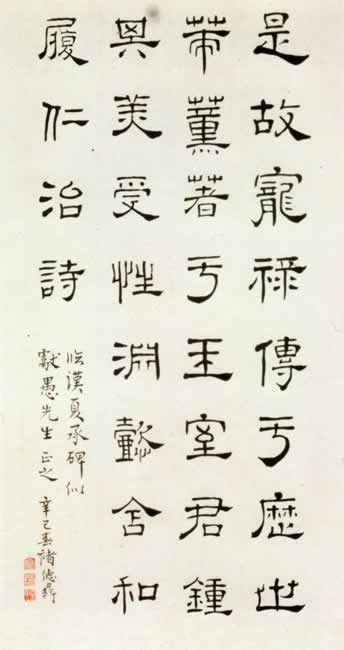 是故寵祿傳于歷世
策薰著于王室君鍾
其美受性淵懿含和
履仁治詩
臨漢夏承碑似
獻愚先生正之 辛巳春褚德彝